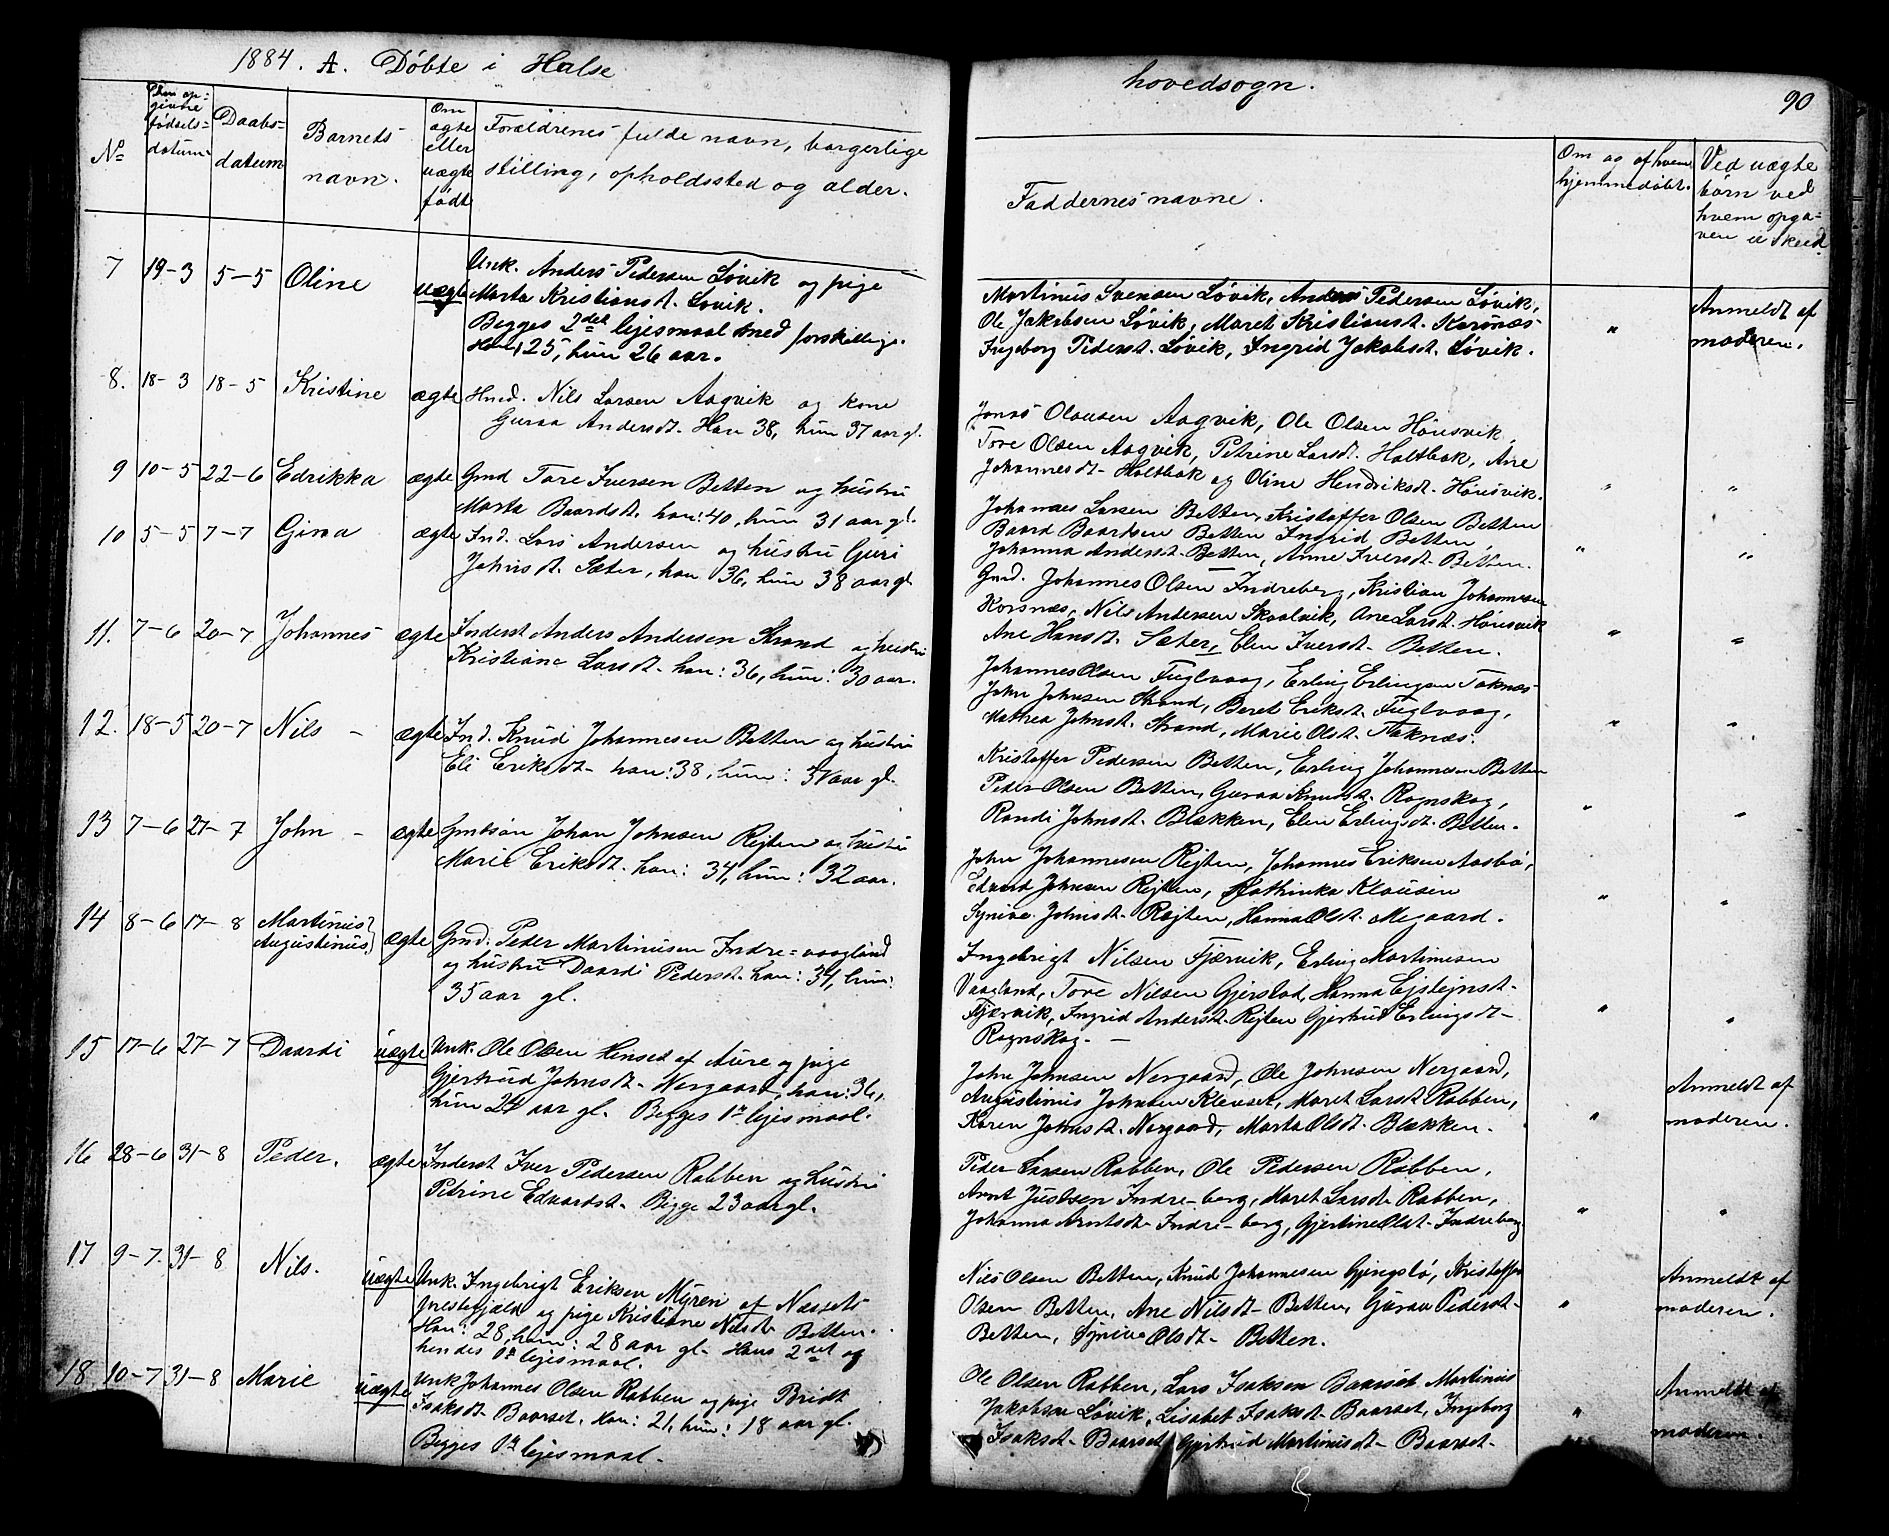 1884. A. Döbte i Halse
hovedsogn.
90
No
Den op-
givne
födsels-
datum
Daabs-
datum
Barnets
navn.
Om
ægte
eller
uægte
født
Forældrenes fulde navn, borgerlige
stilling, opholdssted og alder.
Faddernes navne.
Om og af hvem
hjemmedöbt.
Ved uægte
börn ved
hvem opga-
ven er skeed
7 19-3 5-5 Oline uægte
Unk. Anders Pedersen Lövik og pige
Marta Kristiansdt. Lövik.
Begges 2det lejesmaal med forskellige.
Han 25, hun 26 aar.
Martinus Svensen Lövik, Anders Pedersen Lövik,
Ole Jakobsen Lövik, Maret Kristiansdt. Korsnæs
Ingeborg Pedersdt. Lövik, Ingrid Jakobsdt. Lövik.
" Anmeldt af
moderen.
8. 18-3 18-5 Kristine ægte
Hmd. Nils Larsen Aagvik og kone
Guraa Andersdt. Han 38, hun 37 aar gl.
Jonas Olausen Aagvik, Ole Olsen Hönsvik,
Tore Olsen Aagvik, Petrine Larsdt. Holtbak, Ane
Johannesdt. Holtbak og Oline Hendriksdt. Hönsvik.
" "
9 10-5 22-6 Edrikka ægte
Gmd Tore Iversen Betten og hustru
Marta Baardsdt. han: 40, hun 31 aar gl.
Johannes Larsen Betten, Kristoffer Olsen Betten
Baard Baardsen Betten Ingrid Betten,
Johanna Andersdt. Betten, Anne Iversdt. Betten.
" "
10 5-5 7-7 Guraa ægte
Ind. Lars Andersen og hustru Guri
Johnsdt. Sæter, han 36, hun 38 aar gl.
Gmd. Johannes Olsen Indreberg, Kristian Johannesen
Korsnæs, Nils Andersen Skaalvik, Ane Larsdt. Hönsvik
Ane Hansdt. Sæter, Elen Iversdt. Betten.
" "
11. 7-6 20-7 Johannes ægte
Inderst Anders Andersen Strand og hustru
Kristiane Larsdt. han: 36, hun: 30 aar.
Johannes Olsen Fuglvaag, Erling Erlingsen Taknæs
John Johnsen Strand, Beret Eriksdt. Fuglvaag,
Mathea Johnsdt. Strand, Marie Olsdt. Taknæs.
" "
12. 18-5 20-7 Nils - ægte
Ind. Knud Johannesen Betten og hustru
Eli Eriksdt. han: 38, hun: 31 aar gl.
Kristoffer Pedersen Betten, Erling Johannesen Betten
Peder Olsen Betten, Guraa Knudsdt. Rognskog,
Randi Johnsdt. Blækken, Elen Erlingsdt. Betten.
" "
13 7-6 27-7 John - ægte
Gmdsön Johan Johnsen Rejten og hustru
Marie Eriksdt. han: 34, hun: 32 aar.
John Johannesen Rejten, Johannes Eriksen Aasbö,
Edvard Johnsen Rejten, Kathinka Klausen
Synive Johnsdt. Rejten, Hanna Olsdt. Megaard.
" "
14 8-6 17-8 Martinus
Augustinus ægte
Gmd. Peder Martinusen Indre=vaagland
og hustru Daardi Pedersdt. han: 34, hun:
35 aar gl.
Ingebrigt Nilsen Fjærvik, Erling Martinusen
Vaagland, Tore Nilsen Gjerstad, Hanna Ejstejnsdt.
Fjærvik, Ingrid Andersdt. Rejten Gjertrud Erlingsdt-
Rognskog. -
" "
15 17-6 27-7 Daardi uægte
Unk. Ole Olsen Hinset af Aure og pige
Gjertrud Johnsdt. Nergaard, han: 36,
hun 24 aar gl. Begges 1te lejesmaal.
John Johnsen Nergaard, Ole Johnsen Nergaard,
Augustinus Johnsen Klevset, Maret Larsdt Rabben,
Karen Johnsdt. Nergaard, Marta Olsdt. Blækken.
" Anmeldt af
moderen.
16 28-6 31-8 Peder. ægte
Inderst Iver Pedersen Rabben og hustru
Petrine Edvardsdt. Begge 23 aar gl.
Peder Larsen Rabben, Ole Pedersen Rabben,
Arnt Justsen Indre-berg, Maret Larsdt. Rabben,
Johanna Arntsdt. Indre-berg, Gjertine Olsdt. Indreberg
" "
17 9-7. 31-8 Nils. uægte
Unk. Ingebrigt Eriksen Myren af Næssets
prestegjæld og pige Kristiane Nilsdt. Betten.
Han: 28, hun: 28 aar gl. Hans 2det og
hendes 1te lejesmaal.
Nils Olsen Betten, Knud Johannesen Gjengslö, Kristoffer
Olsen Betten, Ane Nilsdt. Betten, Guraa Pedersdt-
Betten, Synive Olsdt. Betten.
" Anmeldt af
moderen.
18 10-7 31-8 Marie uægte
Unk Johannes Olsen Rabben og pige Bridt
Isaksdt. Baarset. Han: 21, hun: 18 aar gl.
Begges 1te lejesmaal.
Ole Olsen Rabben, Lars Isaksen Baarset Martinus
Jakobsen Lövik, Lisabet Isaksdt. Baarset, Ingeborg
Isaksdt. Baarset Gjertrud Martinusdt. Baarset.
" Anmeldt af
moderen.